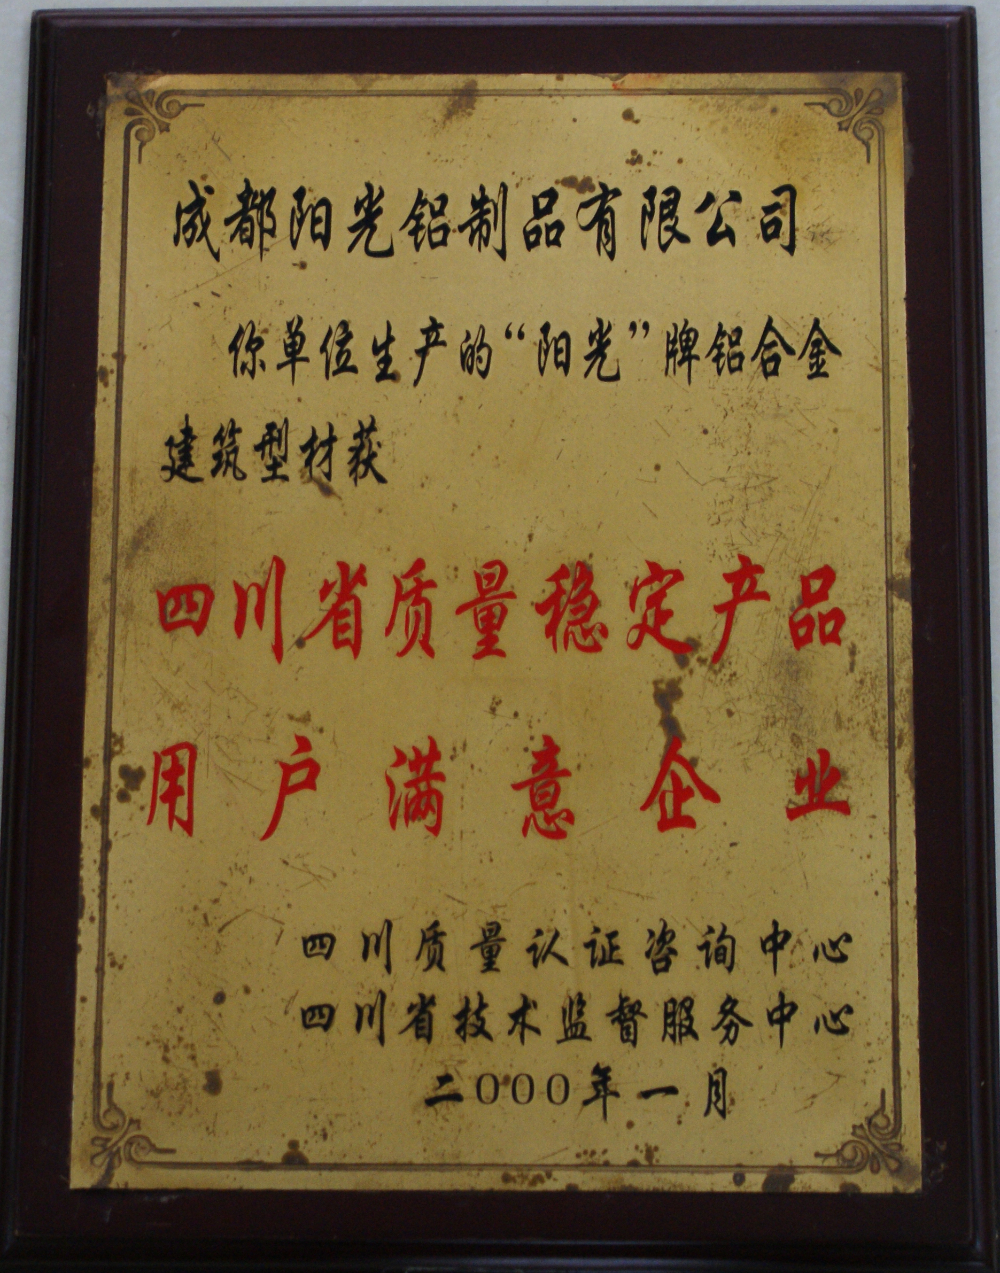 成都阳光铝制品有限公司
你单位生产的“阳光”牌铝合金
建筑型材获
四川省质量稳定产品
用户满意企业
四川质量认证咨询中心
四川省技术监督服务中心
二000年一月